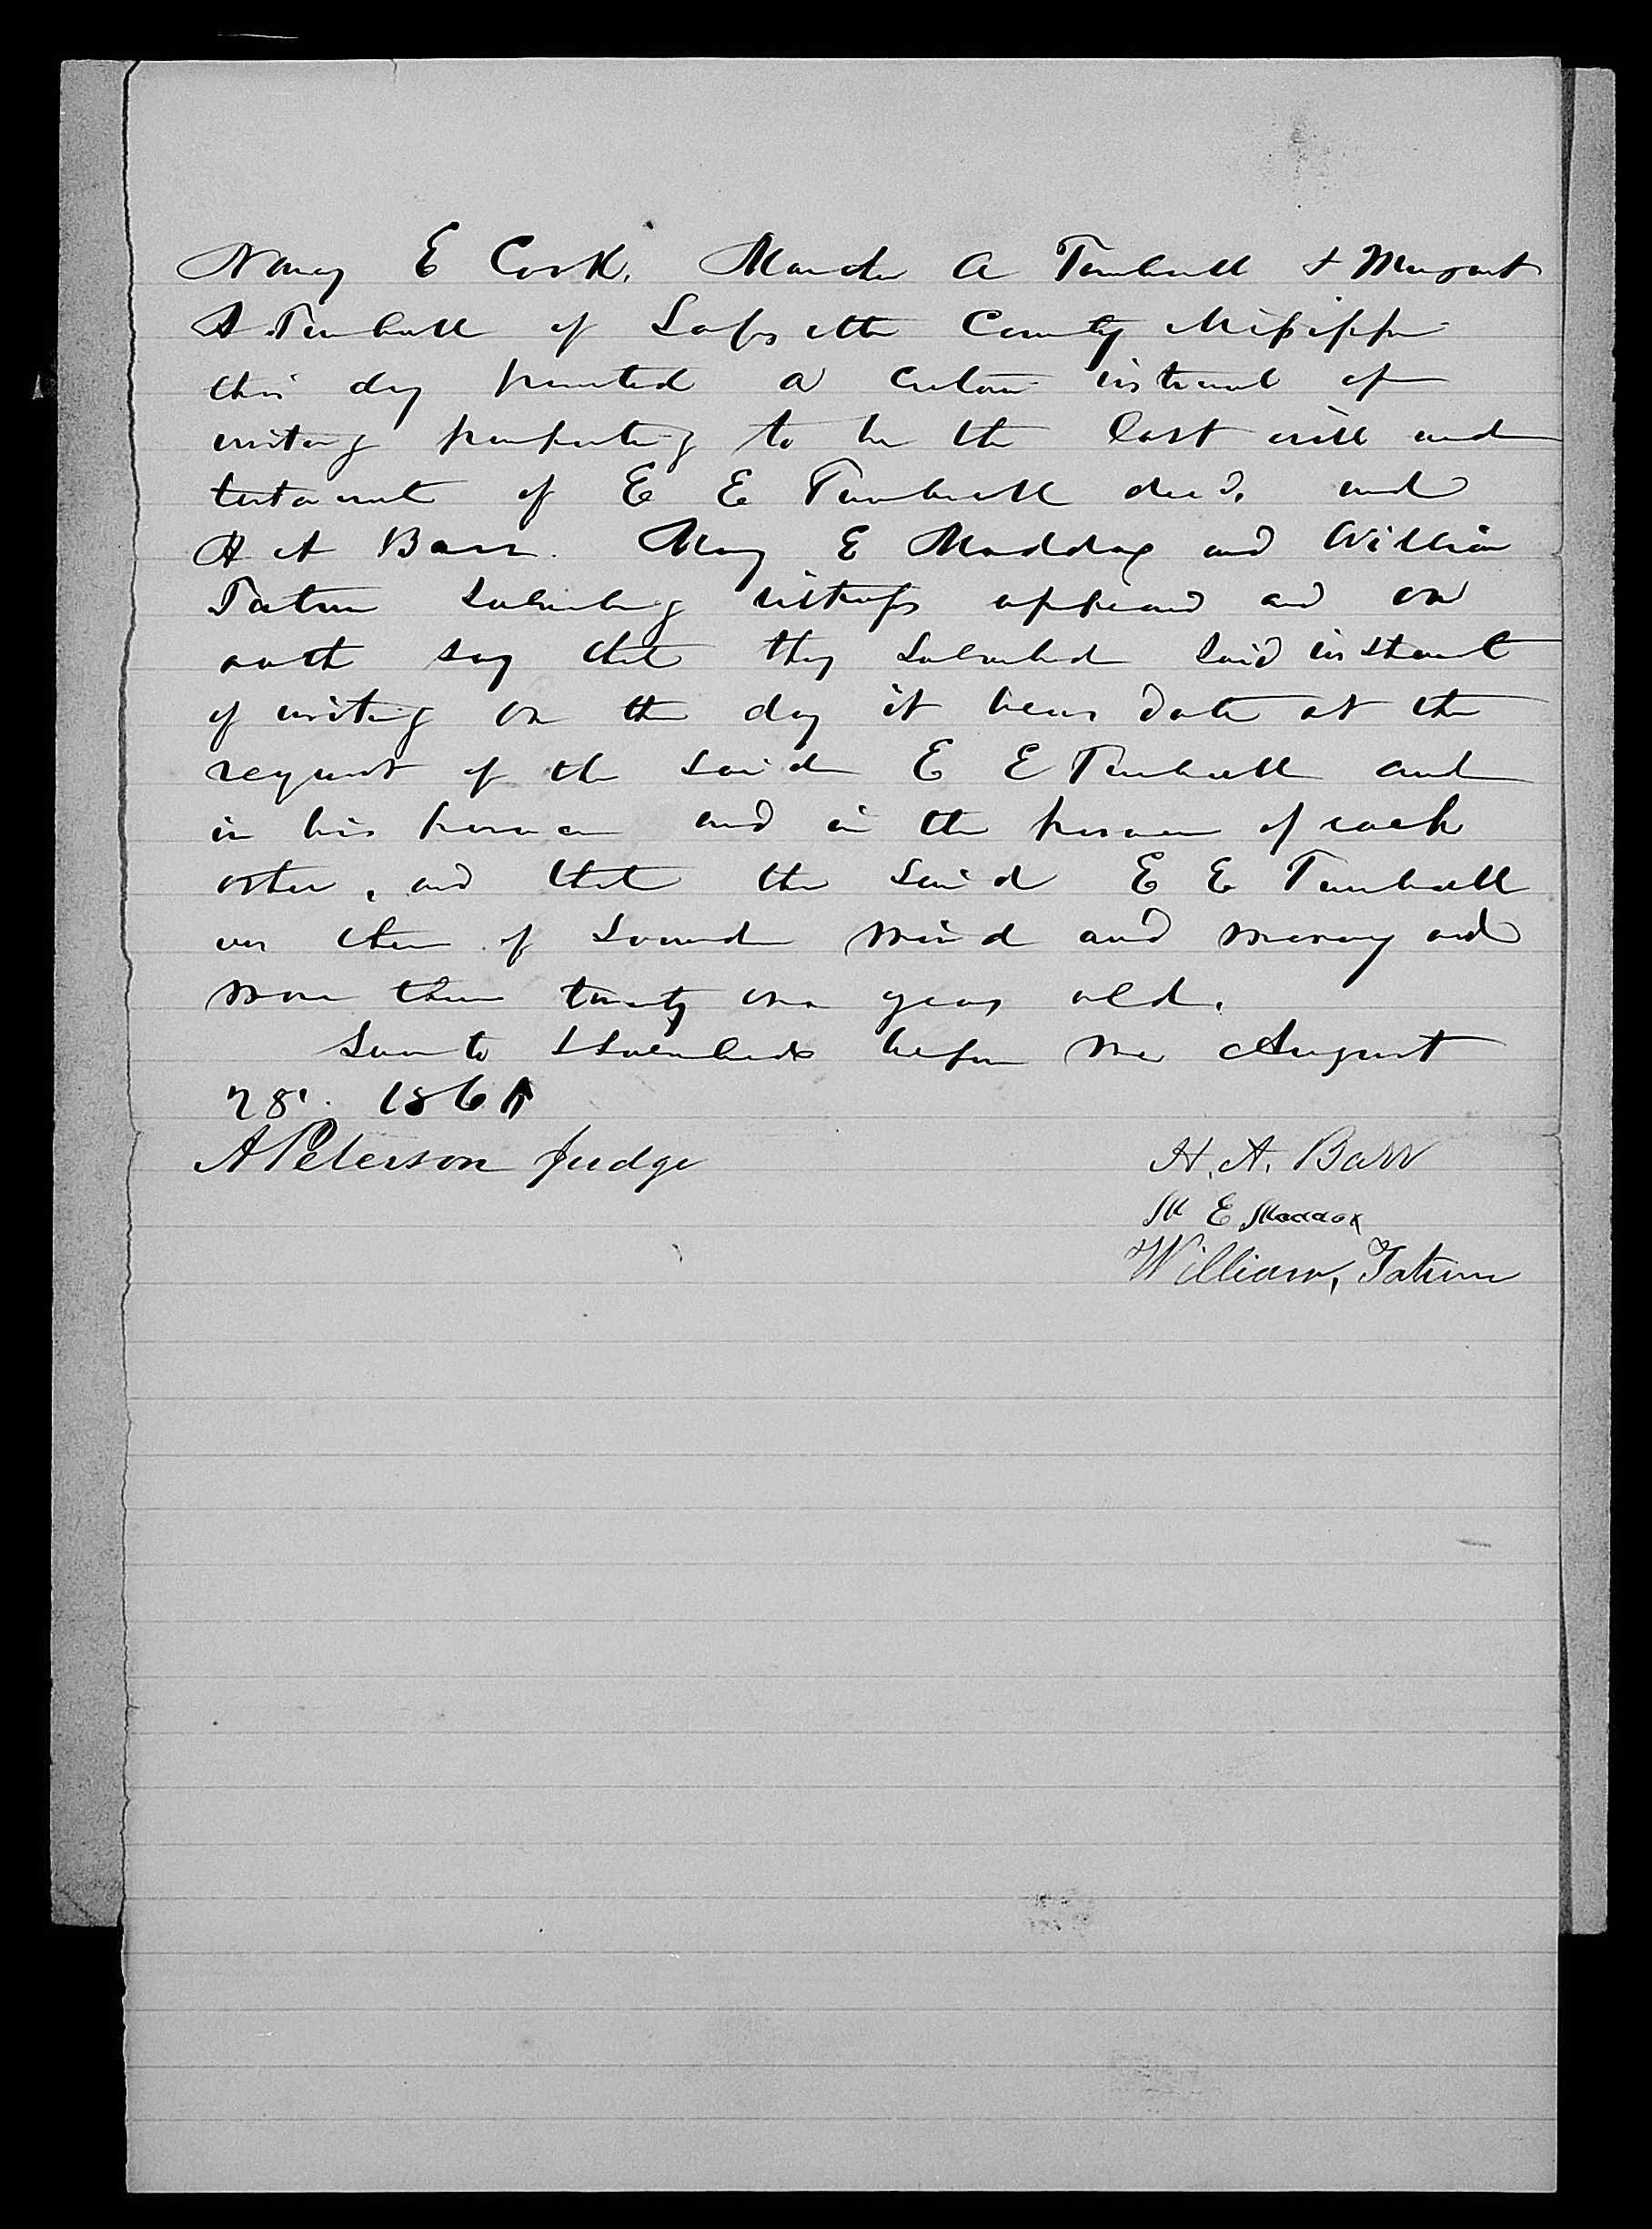 Nancy E Cook, A Turnbull & Margaret
A Turnbull of Lafayette County Mississippi
this day presented a certain instrument of
writing purporting to be the last will and
testament of E E Turnbull decd. and
H A Barr. Mary E Maddox and William
Tatum subscribing witness appeared and on
oath say that they subscribed said instrument
of writing on the day it bears date at the
request of the said E E Turnbull and
in his presence and in the presence of each
other, and that the said E E Turnbull
was then of sound mind and memory and
more than twenty one years old.
Sworn to & subscribed before me August
28. 186
A Peterson Judge
H. A. Barr
M E Maddox
William, Tatum